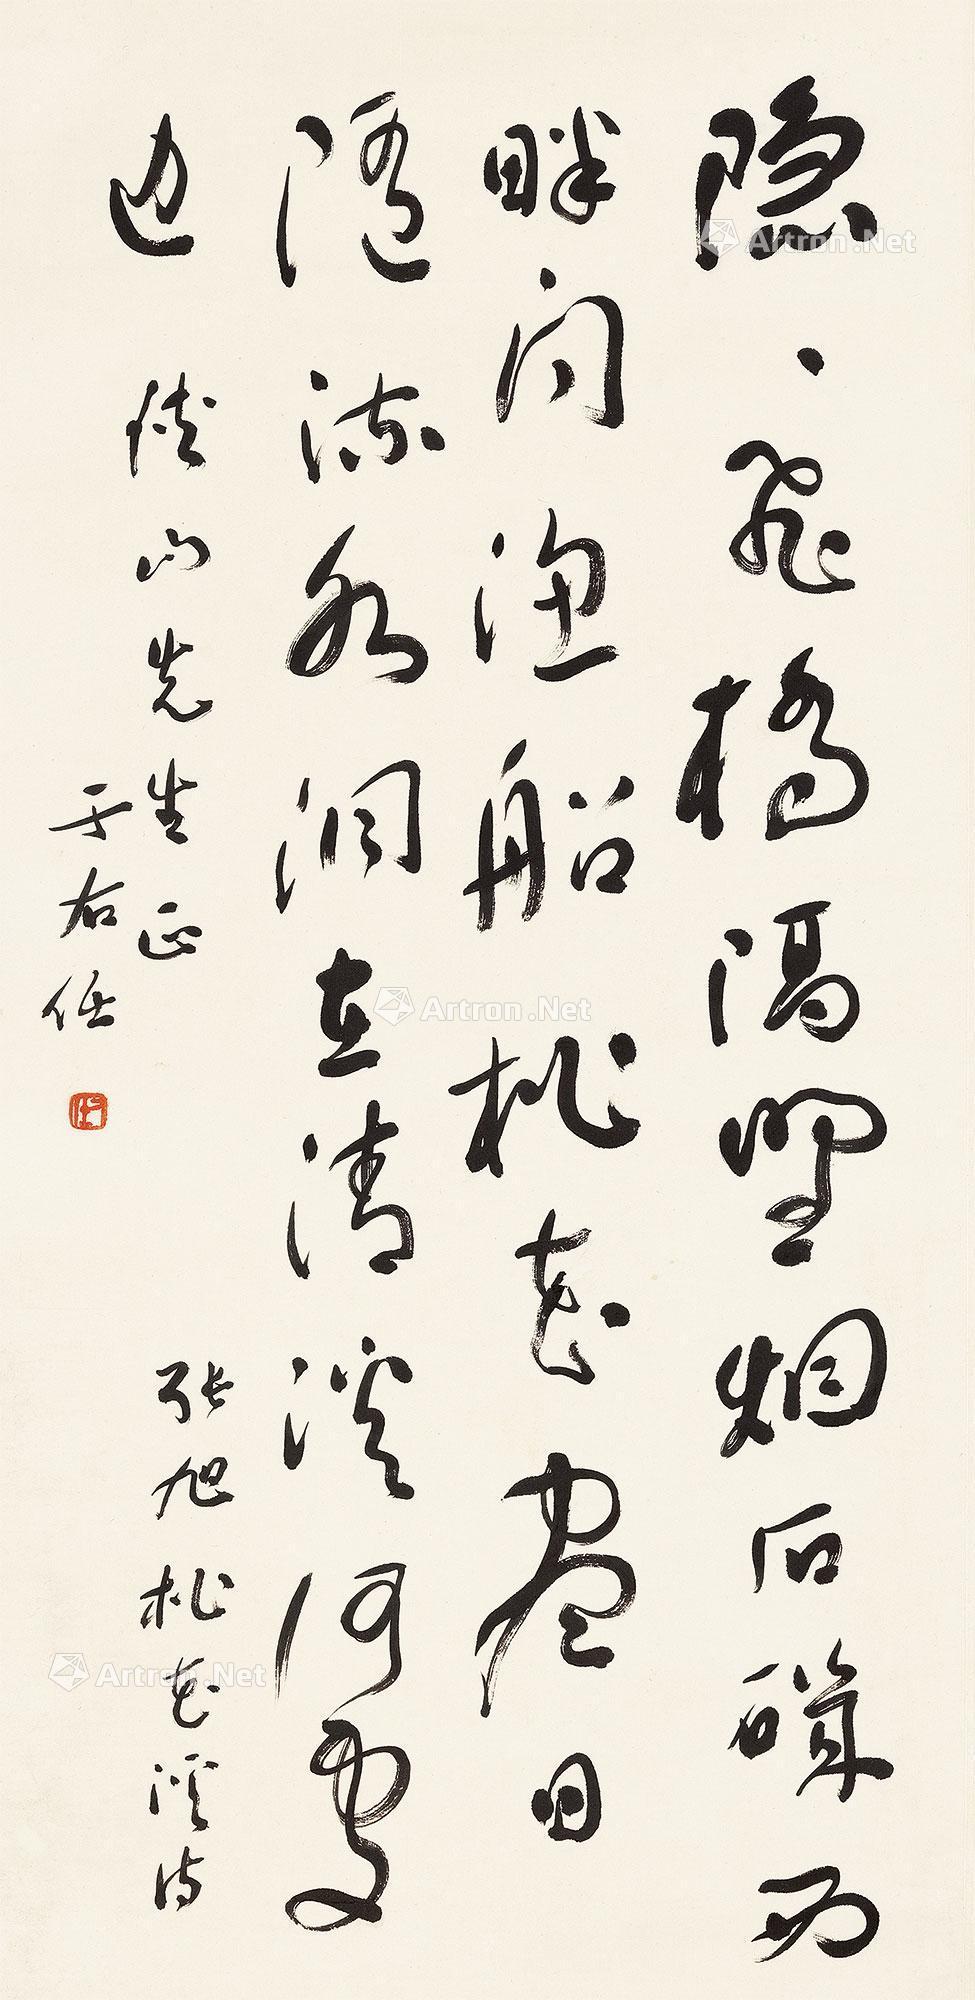 隐、飛橋隔野烟石磯西
畔问渔船桃花盡日
隨流水洞在清溪何處
边
張旭桃花溪诗
山先生正
于右任
Artron.Net
Artron.Net
Artron.Net